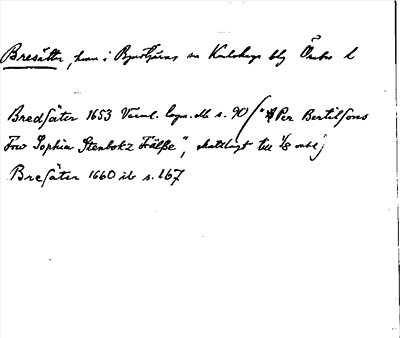 Bresätter, hmn i Bjurtjärns sn Karlskoga blg Örebro l
Bredsäter 1653 Värml. lagn. db s. 90 ("Per Bertilsons
Frw Sophia Stenbokz Frälße", skattlagt till 1/8 mtl)
Bresäter 1660 ib s. 167